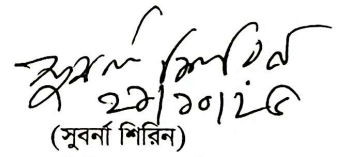 সুবর্না শিরিন
২৯/১০/২৫
(সুবর্না শিরিন)